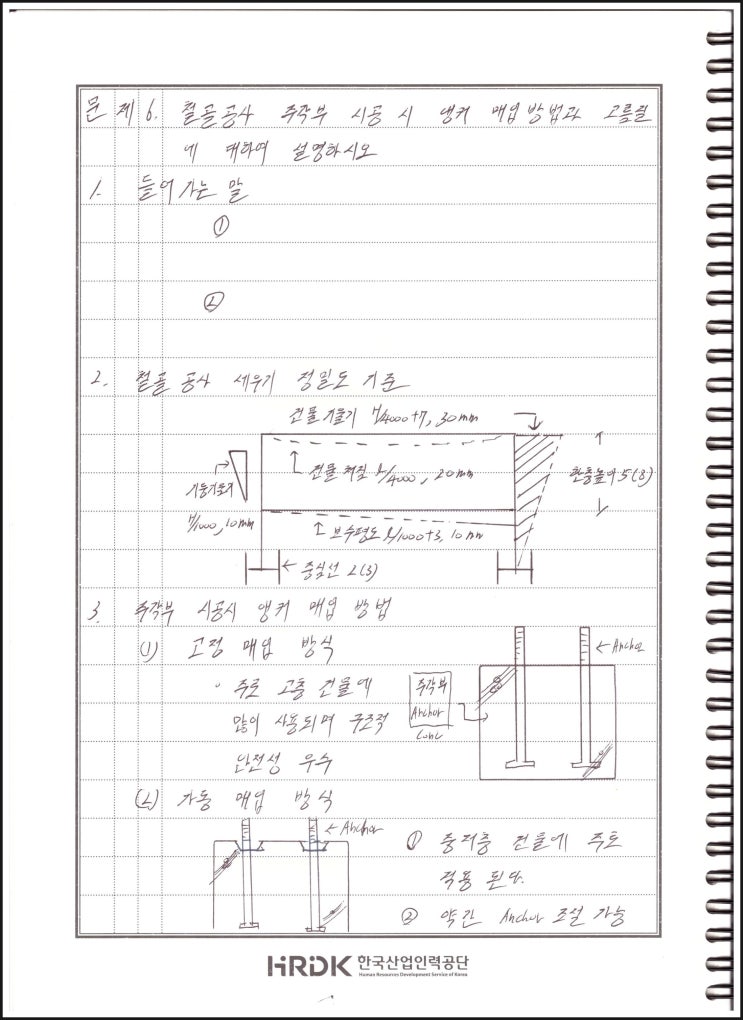 문제 6. 철골공사 주각부 시공 시 앵커 매입방법과 고름질
에 대하여 설명하시오
1. 들어가는 말
①
②
2. 철골 공사 세우기 정밀도 기준
건물기울기 H/4000+7, 30mm
기둥기울기
H/1000, 10mm
건물 처짐 L/4000, 20mm
한층높이 5(8)
보수평도 L/1000+3, 10mm
← 중심선 2(3)
3. 주각부 시공시 앵커 매입 방법
(1) 고정 매입 방식
← Anchor
· 주로 고층 건물에
주각부
많이 사용되며 구조적
Anchor
Conc
안전성 우수
(2) 가동 매입 방식
← Anchor
① 중저층 건물에 주로
적용 된다.
② 약간 Anchor 조절 가능
HRDK 한국산업인력공단
Human Resources Development Service of Korea